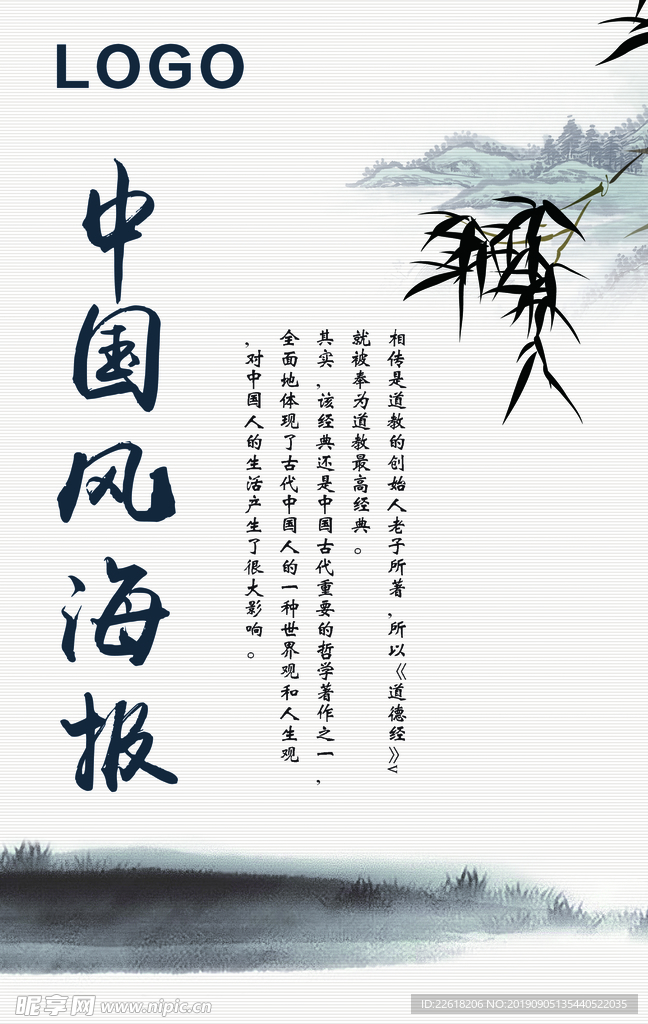 LOGO
中国风海报
相传是道教的创始人老子所著,所以《道德经》v
就被奉为道教最高经典。
其实,该经典还是中国古代重要的哲学著作之一,
全面地体现了古代中国人的一种世界观和人生观
,对中国人的生活产生了很大影响。
昵享网 www.nipic.cn
ID:22618206 NO:20190905135440522035